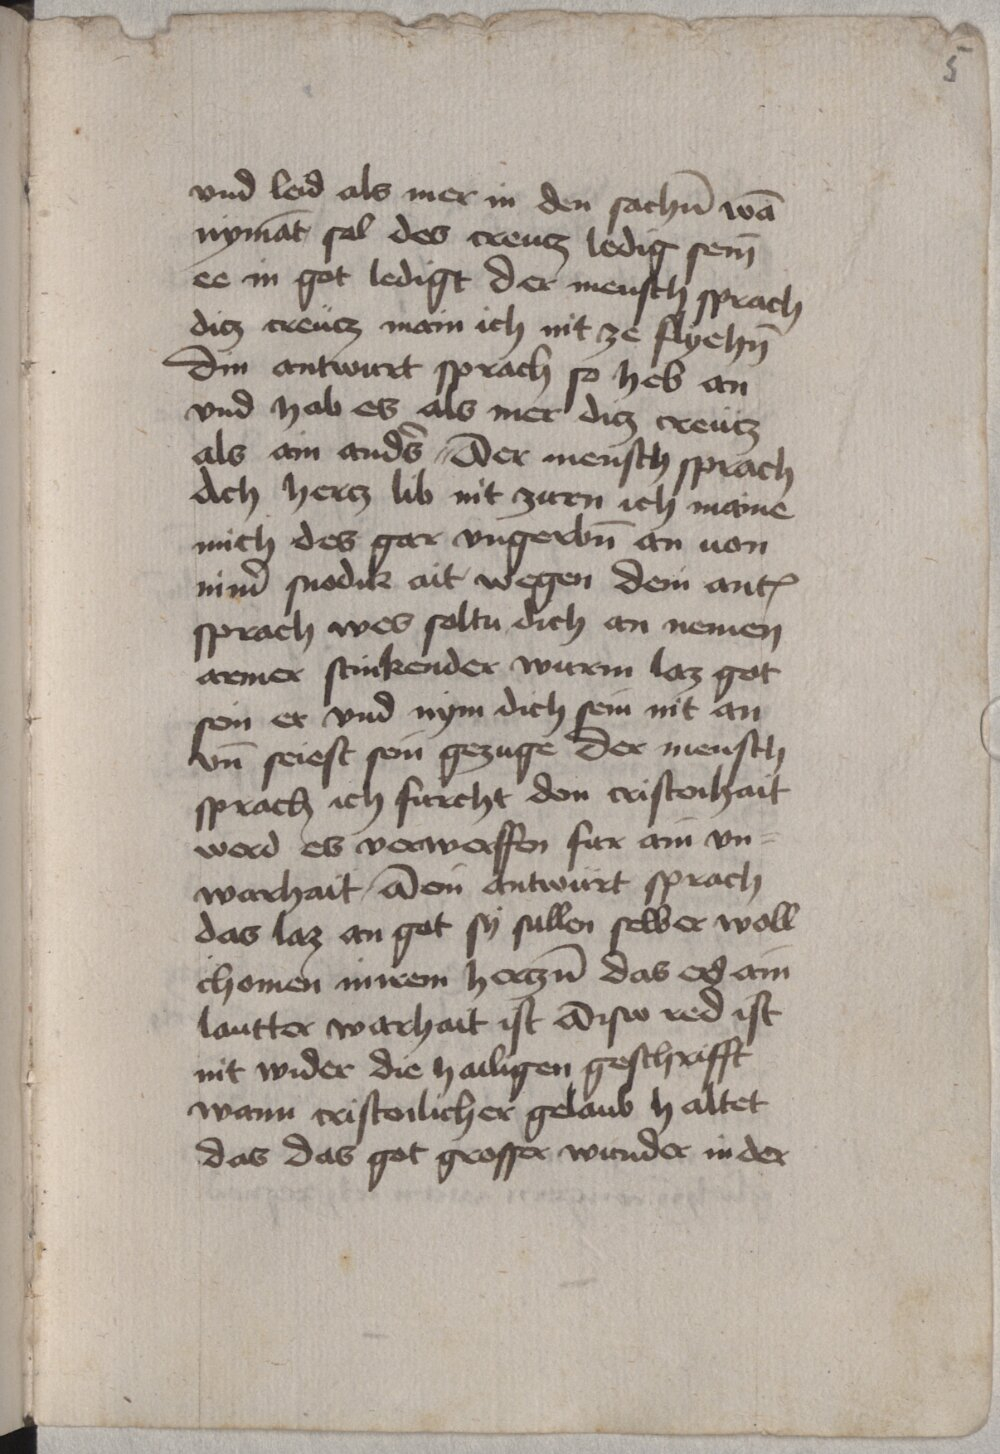 5
vnd leid als mer in den sachn̄ wā
nymāt sol des creutz ledig sein̄
ee in got ledigt Der mensch sprach
ditz creütz main ich nit ze flyehn̄
Din antwurt sprach so heb an
vnd hab es als mer ditz creütz
als ain ands̄ // Der mensch sprach
Ach hertz lib nit zürn ich maine
mich des gar vngern̄ an von
snodik ait wegen Dein ant
sprach wes soltu dich an nemen
armer stinkender wurm laz got
sein er vnd nym dich sein nit an
vn̄ seiest sein gezuge Der mensch
sprach ich furcht den cristenhait
werd es verwerffen fur ain vn-
warhait / Dein antwürt sprach
das laz an got sy sullen selber woll
chomen in irem hertzn̄ das es ain
lautter warhait ist Disw red ist
nit wider die hailigen geschrifft
wann cristenlicher gelaub haltet
das das got grosser wunder in der